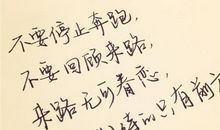 不要停止奔跑，
不要回顾来路，
来路无可眷恋，
只有前